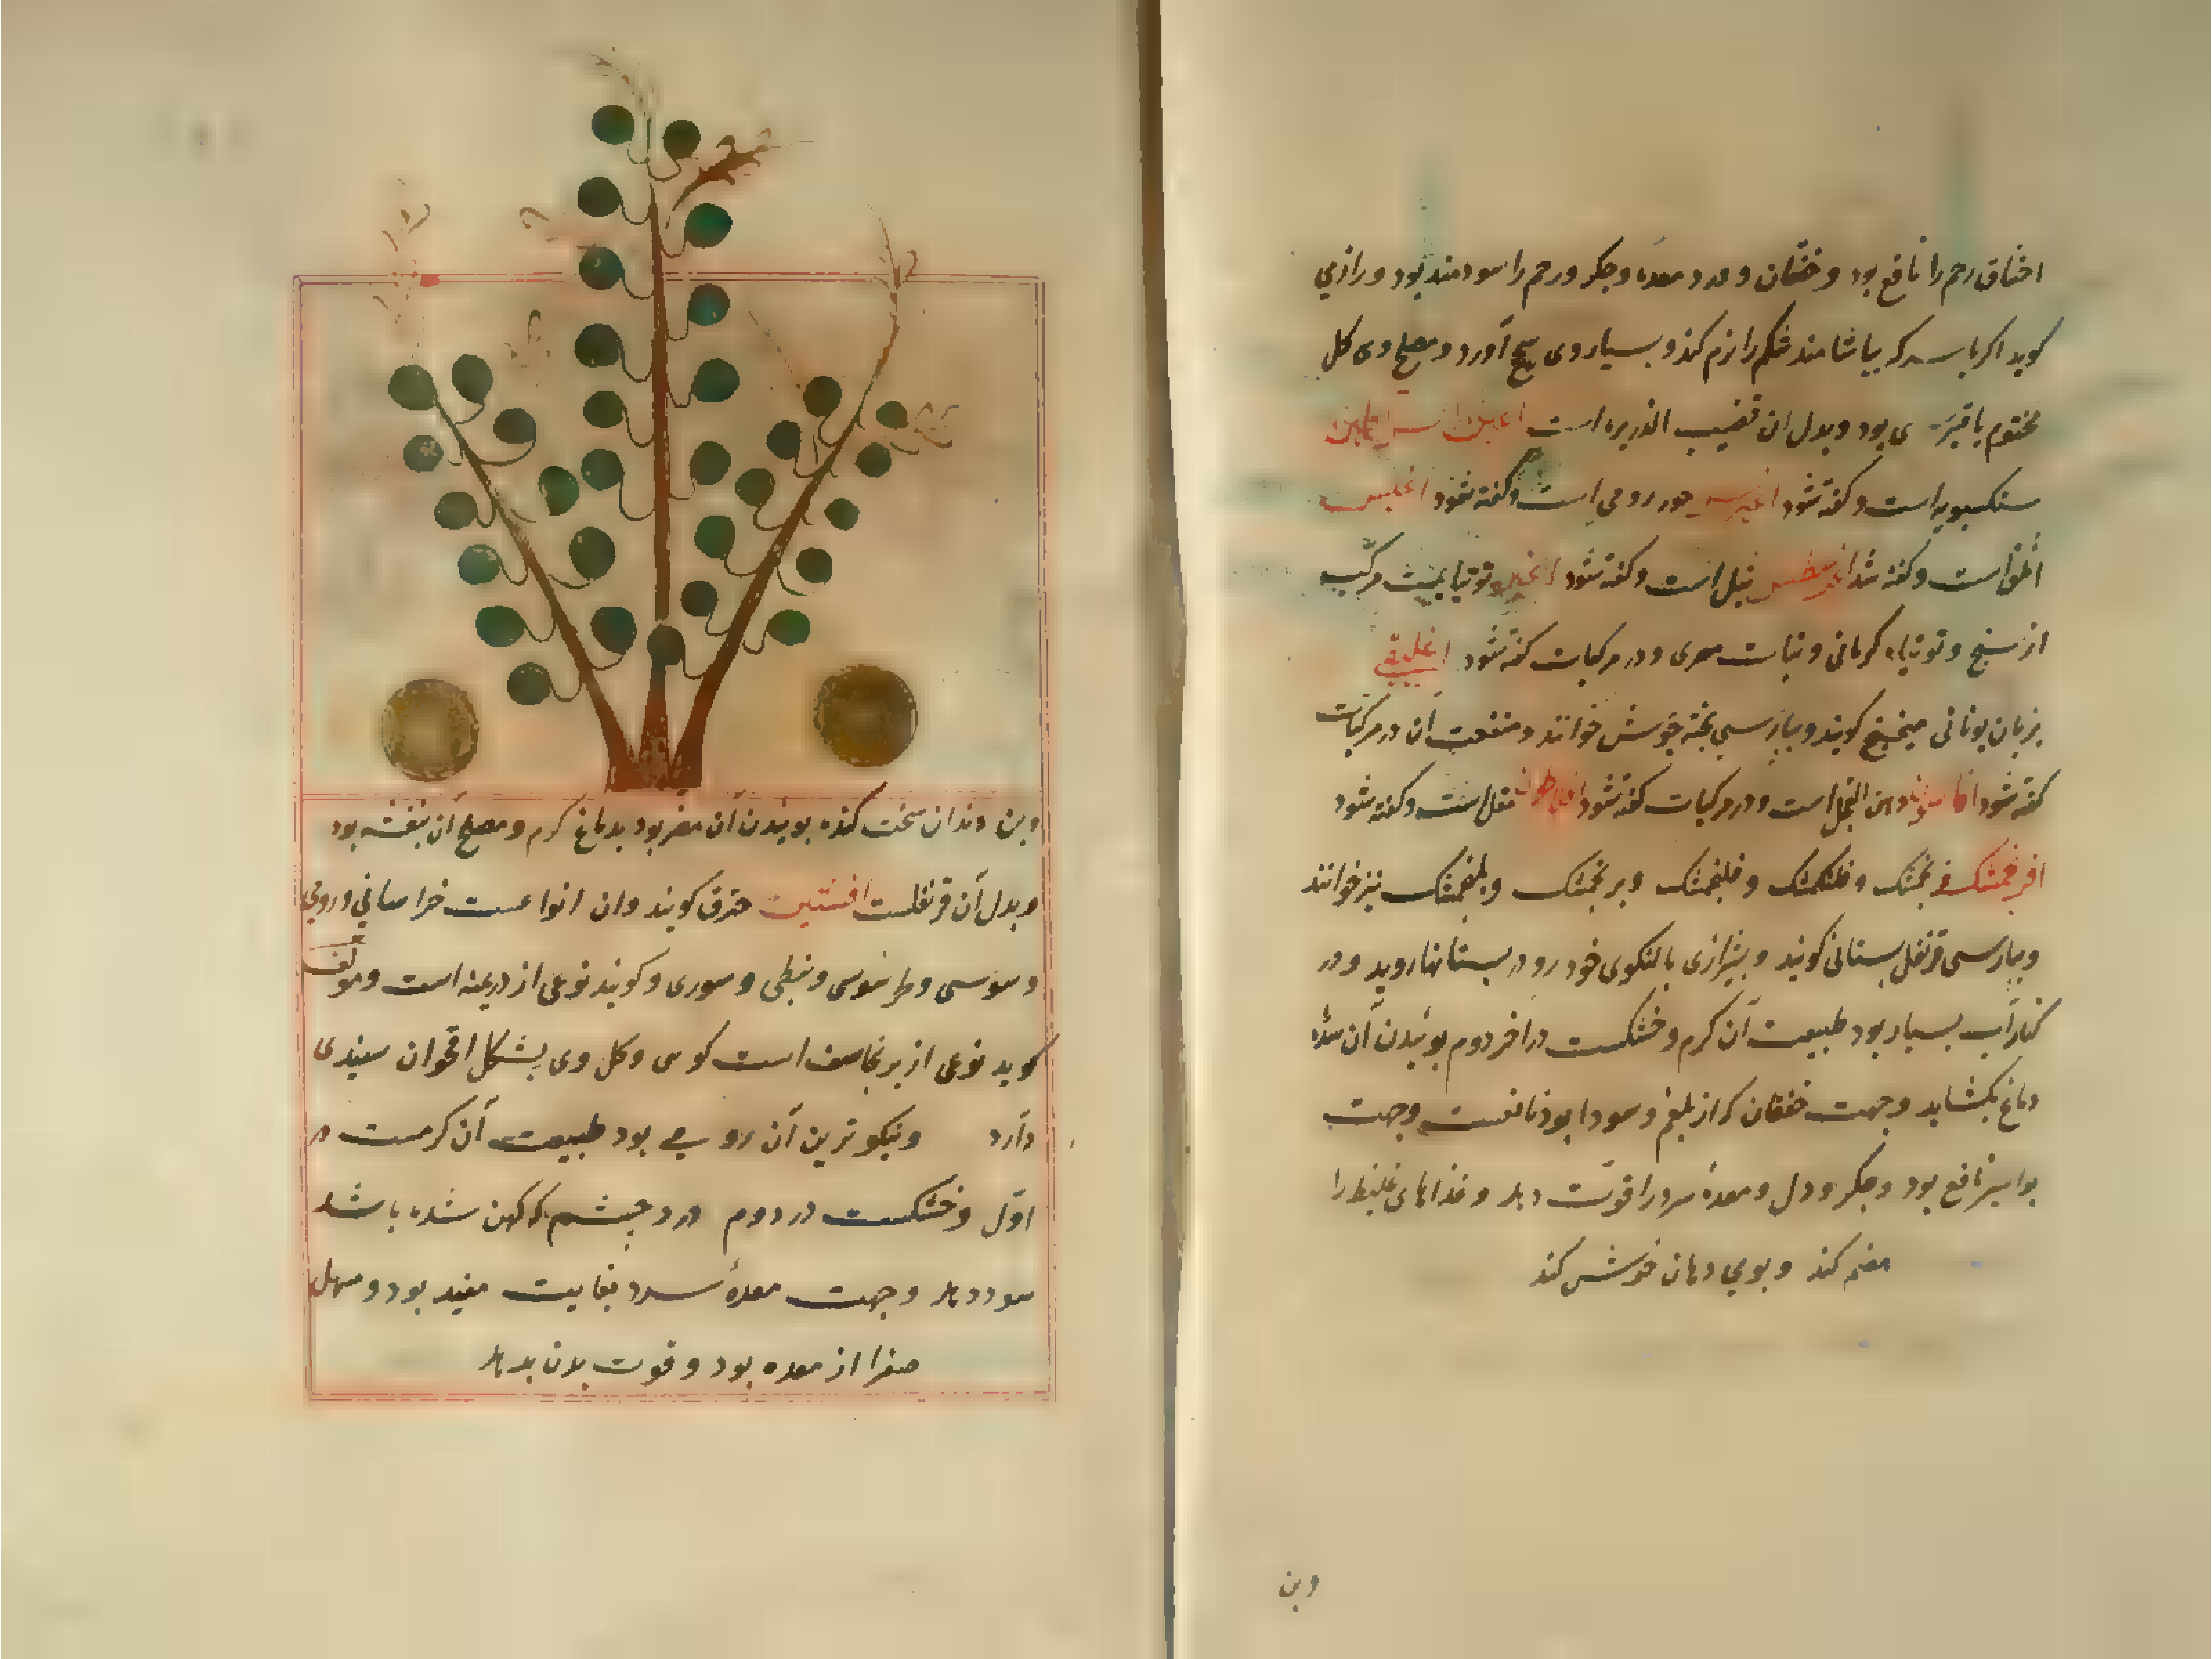 اختناق رحم را نافع بود و خفقان و درد معده و جکر و رحم را سودمند بود و رازی
کوید اکر با سرکه بیاشامند شکم را نرم کند و بسیار وی سحج آورد و مصلح وی کل
مختوم یا قبرسی بود و بدل ان قصب الذریره است
سنکسبویه است و کفته شود اغیرس جوز رومی است و کفته شود اغلیس
است و کفته شد اغرسطس نیل است و کفته شود اغیر و توتیا ئیست مرکب
از سنج و توتیاء کرمانی و نبات مصری و در مرکبات کفته شود اغلیقی
بزبان یونانی میفختج کویند و بپارسی پخته جوش خوانند و منفعت ان در مرکبات
کفته شود دهن الفجل است و در مرکبات کفته شود مقل است و کفته شود
افرنجمشک فرنجمشک و فلنکمشک و فلنجمشک و برنجمشک و بلنجمشک نیز خوانند
و بپارسی قرنفل بستانی کویند و بشیرازی بالنکوی خود رو در بستانها روید و در
کنار آب بسیار بود طبیعت آن کرم و خشکست در اخر دوم بوئیدن آن سده
دماغ بکشاید و جهت خفقان که از بلغم و سودا بود نافعست و جهت
بواسیر نافع بود و جکر و دل و معدهٔ سرد را قوت دهد و غذاهای غلیظ را
هضم کند و بوی دهان خوش کند
وبن
وبن دندان سخت کند بوئیدن آن مضر بود بدماغ کرم و مصلح آن بنفشه بود
و بدل آن قرنفلست افسنتین خترق کویند وان انواعست خراسانی و رومی
و سوسی و طرسوسی و نبطی و سوری و کویند نوعی از دریمنه است و مولف
کوید نوعی از برنجاسف است کوهی و کل وی بشکل اقحوان سپیدی
دارد و نیکوترین آن رومی بود طبیعت آن کرمست در
اوّل و خشکست در دوم درد چشم که کهن شده باشد
سود دهد و جهت معدهٔ سرد بغایت مفید بود و مسهل
صفرا از معده بود و قوت بدن بدهد